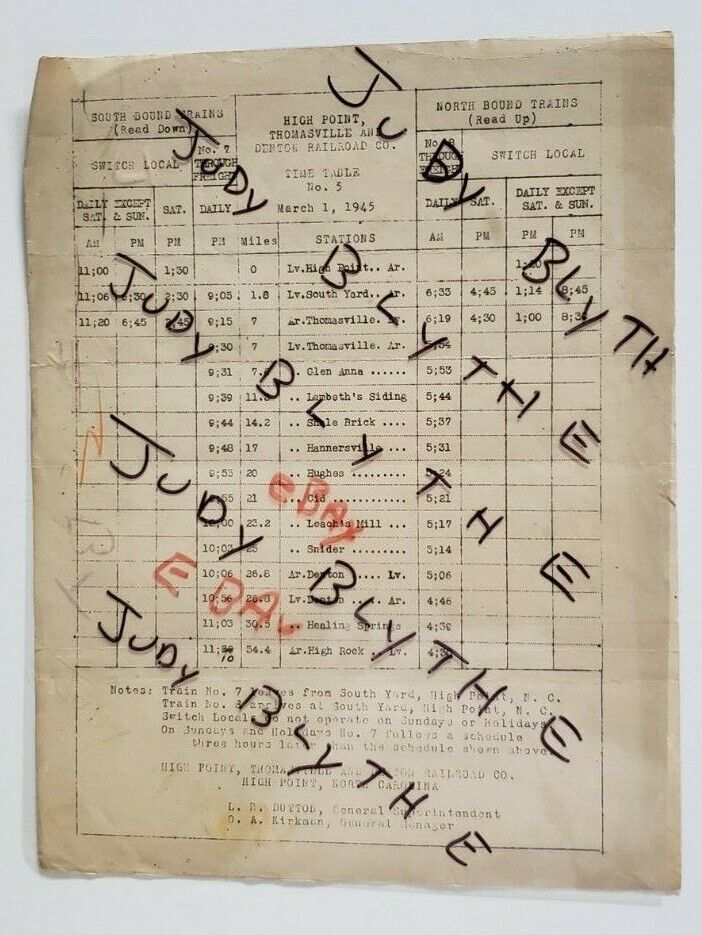 SOUTH BOUND TRAINS
(Read Down)
HIGH POINT,
THOMASVILLE AND
DENTON RAILROAD CO.
NORTH BOUND TRAINS
(Read Up)
SWITCH LOCAL
No. 7
THROUGH
FREIGHT
TIME TABLE
No. 5
No. 8
THROUGH
FREIGHT
SWITCH LOCAL
DAILY EXCEPT
SAT. & SUN.
SAT.
DAILY
March 1, 1945
DAILY
SAT.
DAILY EXCEPT
SAT. & SUN.
AM PM PM PM Miles STATIONS AM PM PM PM
11;00 1;30 0 Lv.High Point.. Ar.
11;06 6;30 2;30 9;05 1.8 Lv.South Yard.. Ar. 6;33 4;45 1;14 8;45
11;20 6;45 2;45 9;15 7 Ar.Thomasville. Lv. 6;19 4;30 1;00
9;30 7 Lv.Thomasville. Ar.
9;31 .. Glen Anna ...... 5;53
9;39 .. Lambeth's Siding 5;44
9;44 14.2 .. Shale Brick .... 5;37
9;48 17 .. Hannersville ... 5;31
9;53 20 .. Hughes .........
21 .. Cid ............ 5;21
23.2 .. Leach's Mill ... 5;17
10;03 25 .. Snider .........
10;06 26.8 Ar.Denton .... Lv. 5;06
10;56 26.8 Lv.Denton .... Ar. 4;46
11;03 30.5 .. Healing Springs 4;39
11; 10 34.4 Ar.High Rock . Lv.
Notes: Train No. 7 leaves from South Yard, High Point, N. C.
Train No. 8 arrives at South Yard, High Point, N. C.
Switch Local do not operate on Sundays or Holidays
On Sundays and Holidays No. 7 follows a schedule
three hours later than the schedule shown above
HIGH POINT, THOMASVILLE AND DENTON RAILROAD CO.
HIGH POINT, NORTH CAROLINA
General Superintendent
O. A. Kirkman, General Manager
JUDY BLYTHE
JUDY BLYTHE
JUDY BLYTHE
JUDY BLYTHE
JUDY BLYTHE
eBAY
EBAY